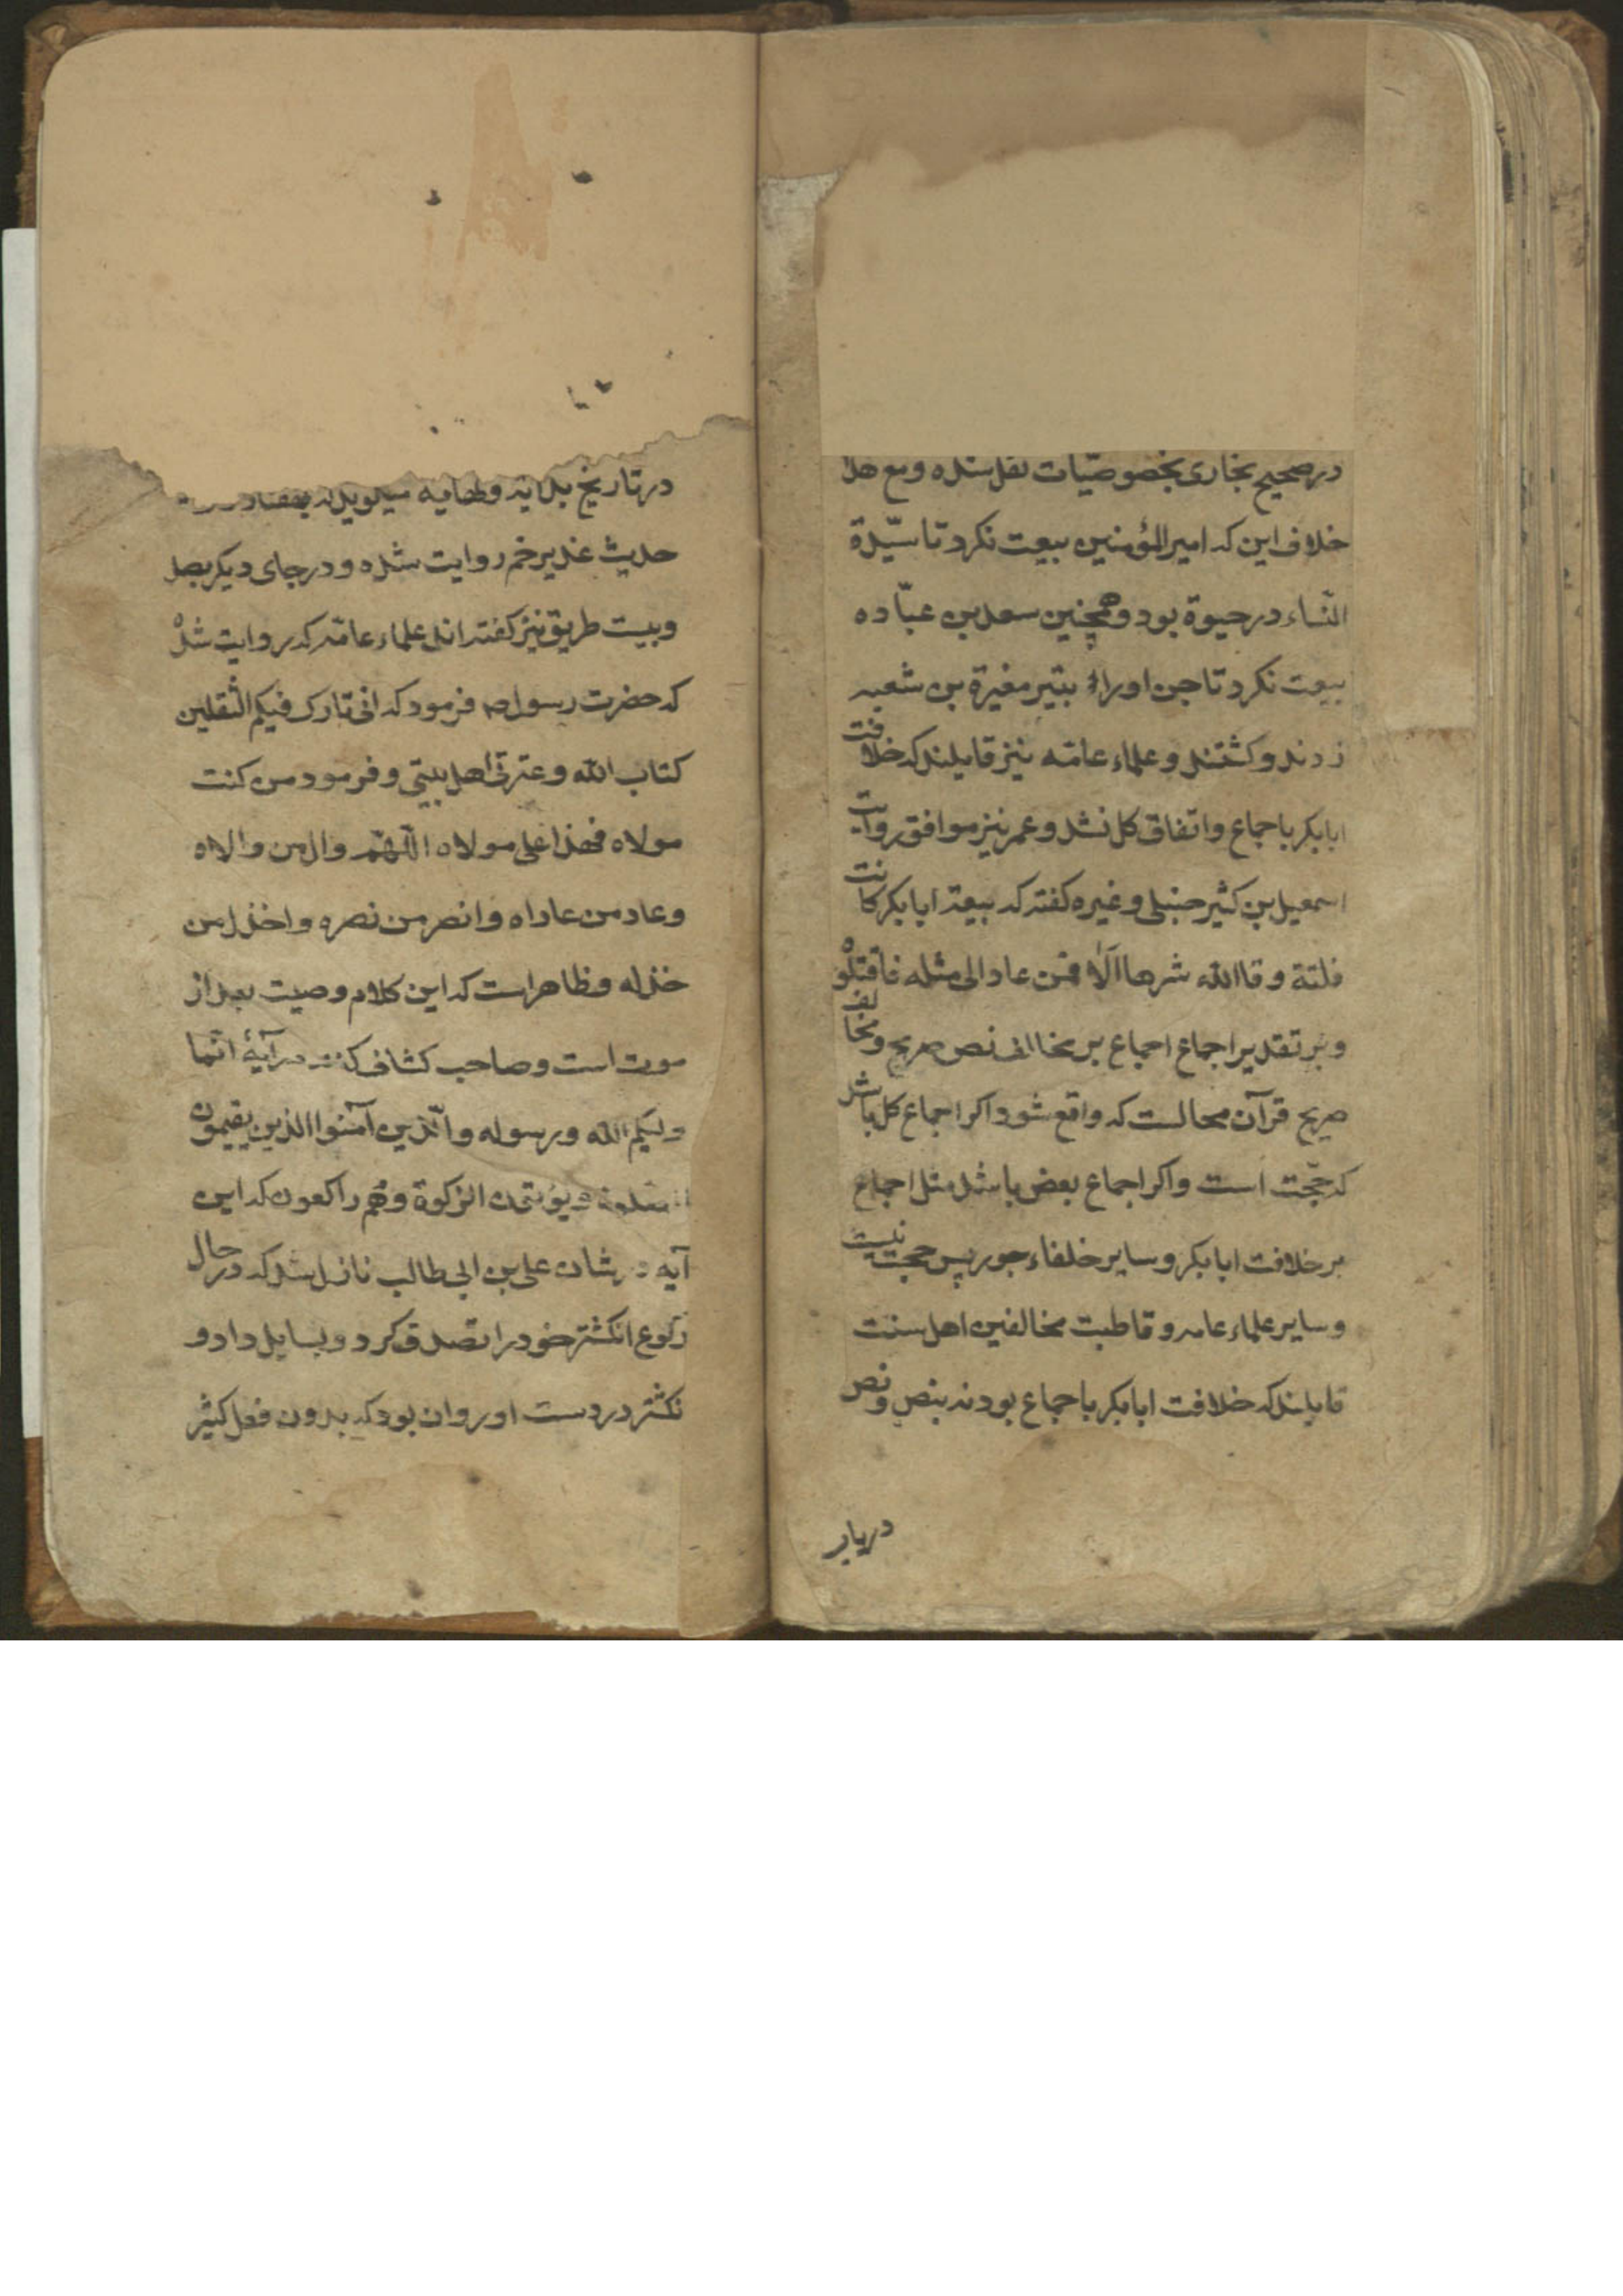 در صحیح بخاری بخصوصیّات نقل شده و مع هذا
خلاف این که امیر المؤمنین بیعت نکرد تا سیّدة
النّساء در حیوة بود و همچنین سعد بن عبّاده
بیعت نکرد تا جن او را بتیر مغیرة بن شعبه
زدند و کشتند و علماء عامّه نیز قایلند که خلافت
ابابکر باجماع و اتفاق کل نشد و عمر نیز موافق روایت
اسمعیل بن کثیر حنبلی و غیره کفته که بیعة ابابکر کانت
فلتة و قا الله شرها الّا فمن عاد الی مثله فاقتلوه
و بر تقدیر اجماع اجماع بر مخالف نص صریح و مخالف
صریح قرآن محالست که واقع شود اکر اجماع کل باشد
که حجّت است و اکر اجماع بعض باشد مثل اجماع
بر خلافت ابابکر و سایر خلفاء جور پس حجت نیست
و سایر علماء عامه و قاطبت مخالفین اهل سنت
قایلند که خلافت ابابکر باجماع بود نه بنص و نص
دربار
در تاریخ
حدیث غدیر خم روایت شده و در جای دیکر بصد
و بیست طریق نیز کفته اند علماء عامّه که روایت شده
که حضرت رسول ص فرمود که انی تارک فیکم الثّقلین
کتاب الله و عترتی اهل بیتی و فرمود من کنت
مولاه فهذا علی مولاه اللّهمّ وال من والاه
و عاد من عاداه و انصر من نصره و اخذل من
خذله و ظاهر است که این کلام وصیت بعد از
موت است و صاحب کشاف در آیۀ انّما
ولیکم الله و رسوله و الّذین آمنوا الذین یقیمون
الصلوة و یؤتون الزکوة و هم راکعون که این
آیه در شان علی بن ابی طالب نازل شد که در حال
رکوع انکشتر خود را تصدق کرد و بسایل داد و
نکشتر در دست او روان بود که بدون فعل کثیر